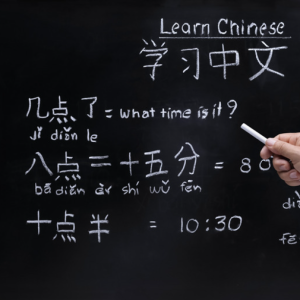 Learn Chinese
学习中文
几点了 = what time is it?
jǐ diǎn le
八点二十五分 = 8
bā diǎn èr shí wǔ fēn
十点半 = 10:30